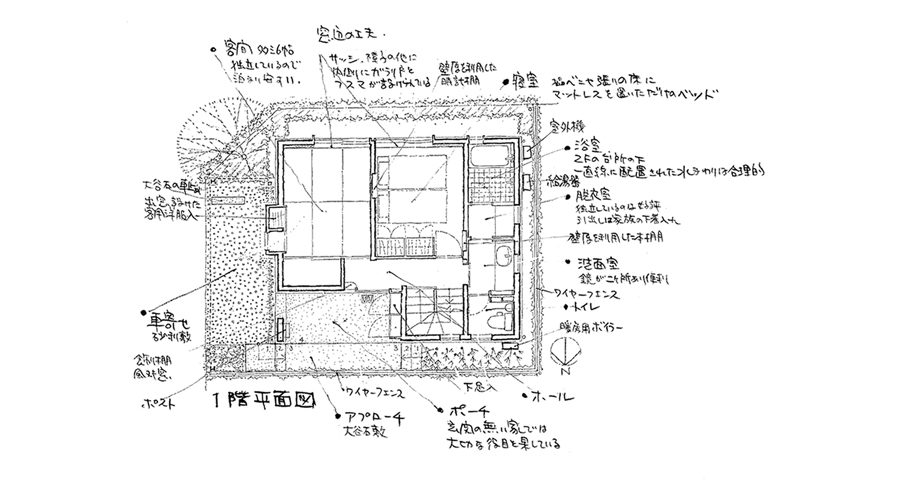 窓辺の工夫.
サッシ、障子の他に
内側にガラリ戸と
フスマが設けられている
• 客間 タタミ6帖
独立しているので
泊り安すい.
壁厚を利用した
時計棚
• 寝室
ベニヤ張りの床に
マットレスを置いただけのベッド
室外機
• 浴室
2Fの台所の下
一直線に配置された水まわりは合理的
給湯器
• 脱衣室
独立しているのは
引出しは家族の下着入れ
壁厚を利用した本棚
• 洗面室
鏡が二ヶ所あり便利
ワイヤーフェンス
• トイレ
暖房用ボイラー
N
大谷石の車止
出窓に設けた
客用洋服入
• 車寄せ
砂利敷
飾り棚
ポスト
1階平面図
ワイヤーフェンス
• アプローチ
大谷石敷
下足入
• ホール
• ポーチ
玄関の無い家では
大切な役目を果している